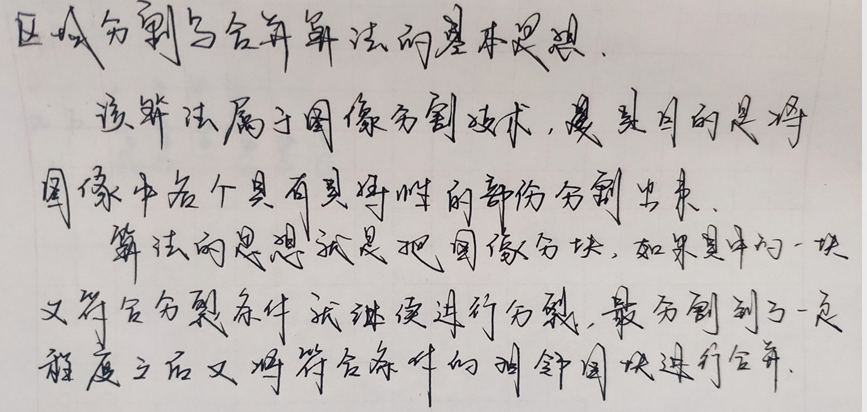 区域分割与合并算法的基本思想.
该算法属于图像分割技术,其目的是将
图像中各个具有其特性的部份分割出来.
算法的思想就是把图像分块,如果其中的一块
又符合分裂条件就继续进行分裂,最分割到了一定
程度之后又将符合条件的相邻图块进行合并.